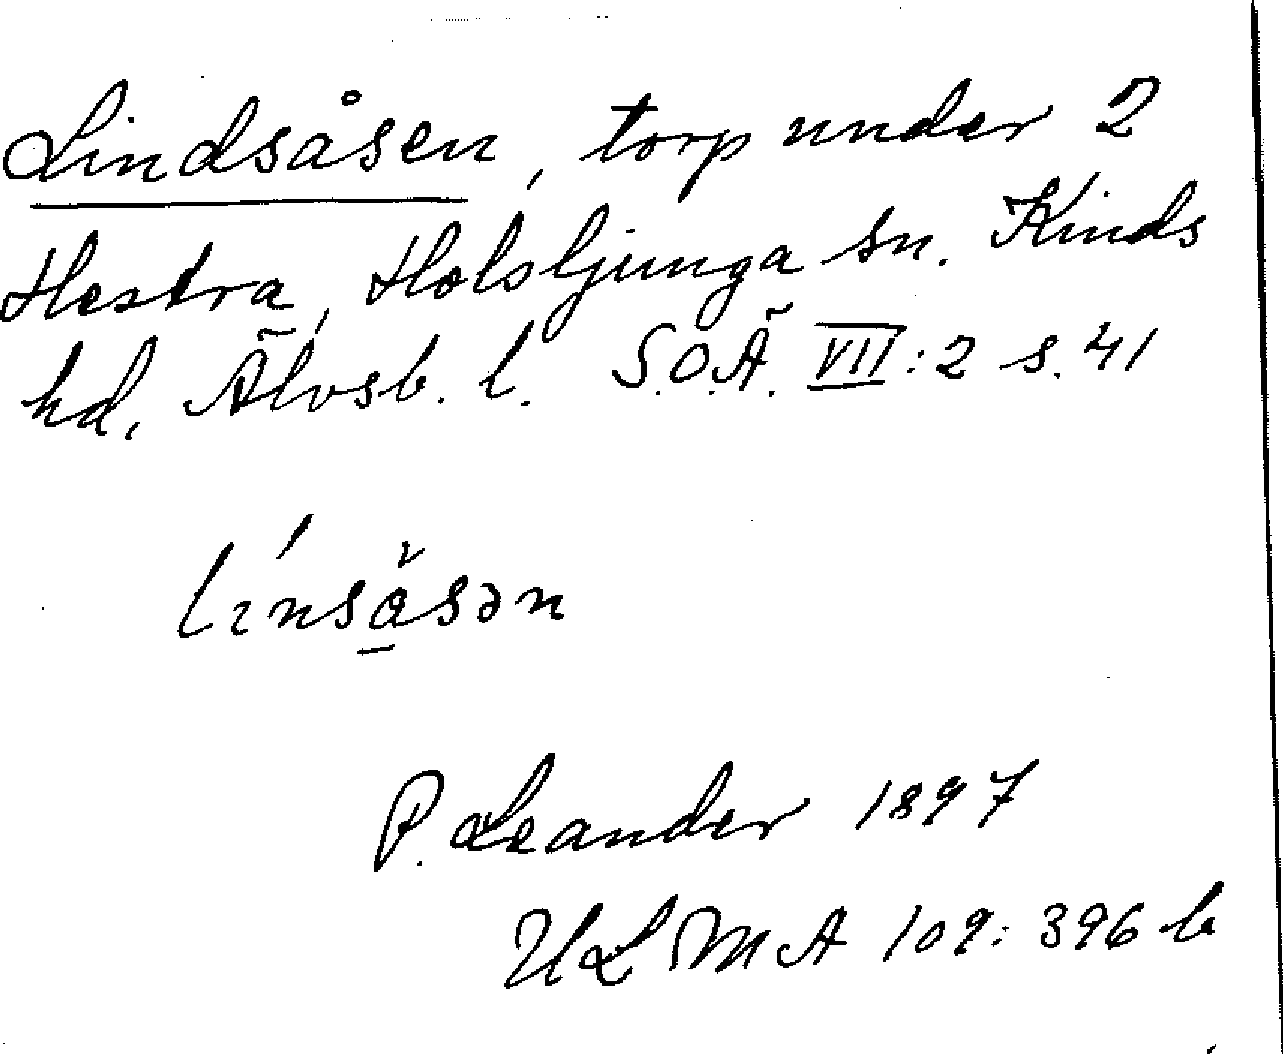 Lindsåsen, torp under 2
Hestra, Holsljunga sn. Kinds
hd, Älvsb. l. S.O.Ä. VII:2 s. 41
línsåsən
P. Leander 1897
ULMA 109: 396 b